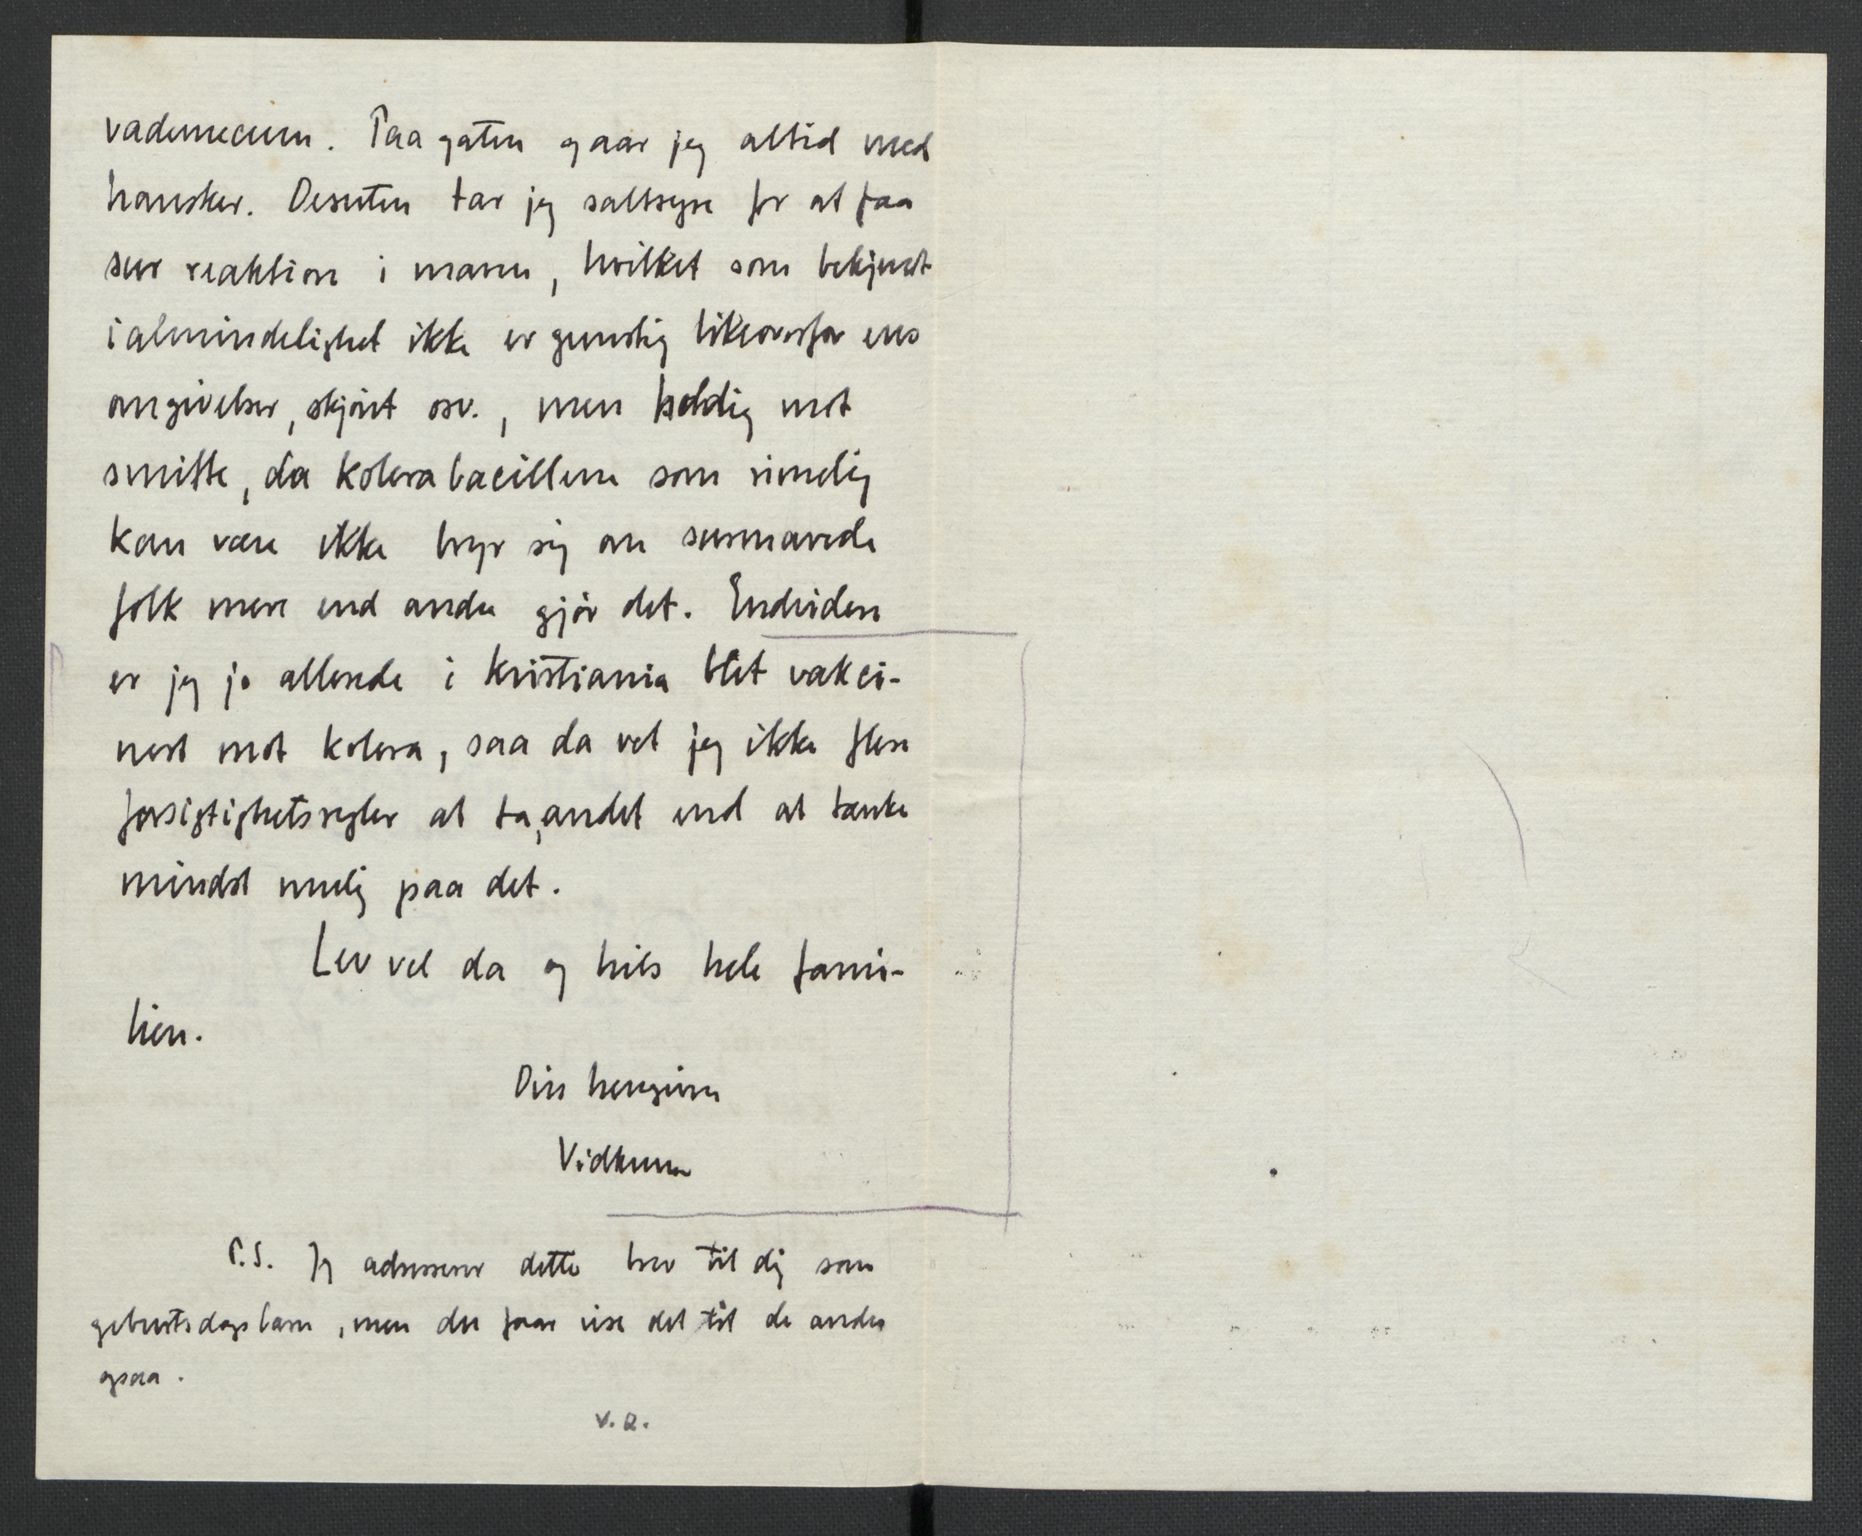 vademecum. Paa gaten gaar jeg altid med
hansker. Desuten tar jeg saltsyre for at faa
sur reaktion i maven, hvilket som bekjendt
i almindelighet ikke er gunstig likeoverfor ens
omgivelser, skjønt osv., men heldig mot
smitte, da kolerabacillene som rimelig
kan være ikke bryr sig om surmavede
folk mere end andre gjør det. Endvidere
er jeg jo allerede i Kristiania blit vakci-
nert mot kolera, saa da vet jeg ikke flere
forsigtighetsregler at ta, andet end at tænke
mindst mulig paa det.
Lev vel da og hils hele fami-
lien.
Din hengivne
Vidkun
P.S. Jeg adresserer dette brev til dig som
geburtsdagsbarn, men du faar vise det til de andre
ogsaa.
V.Q.